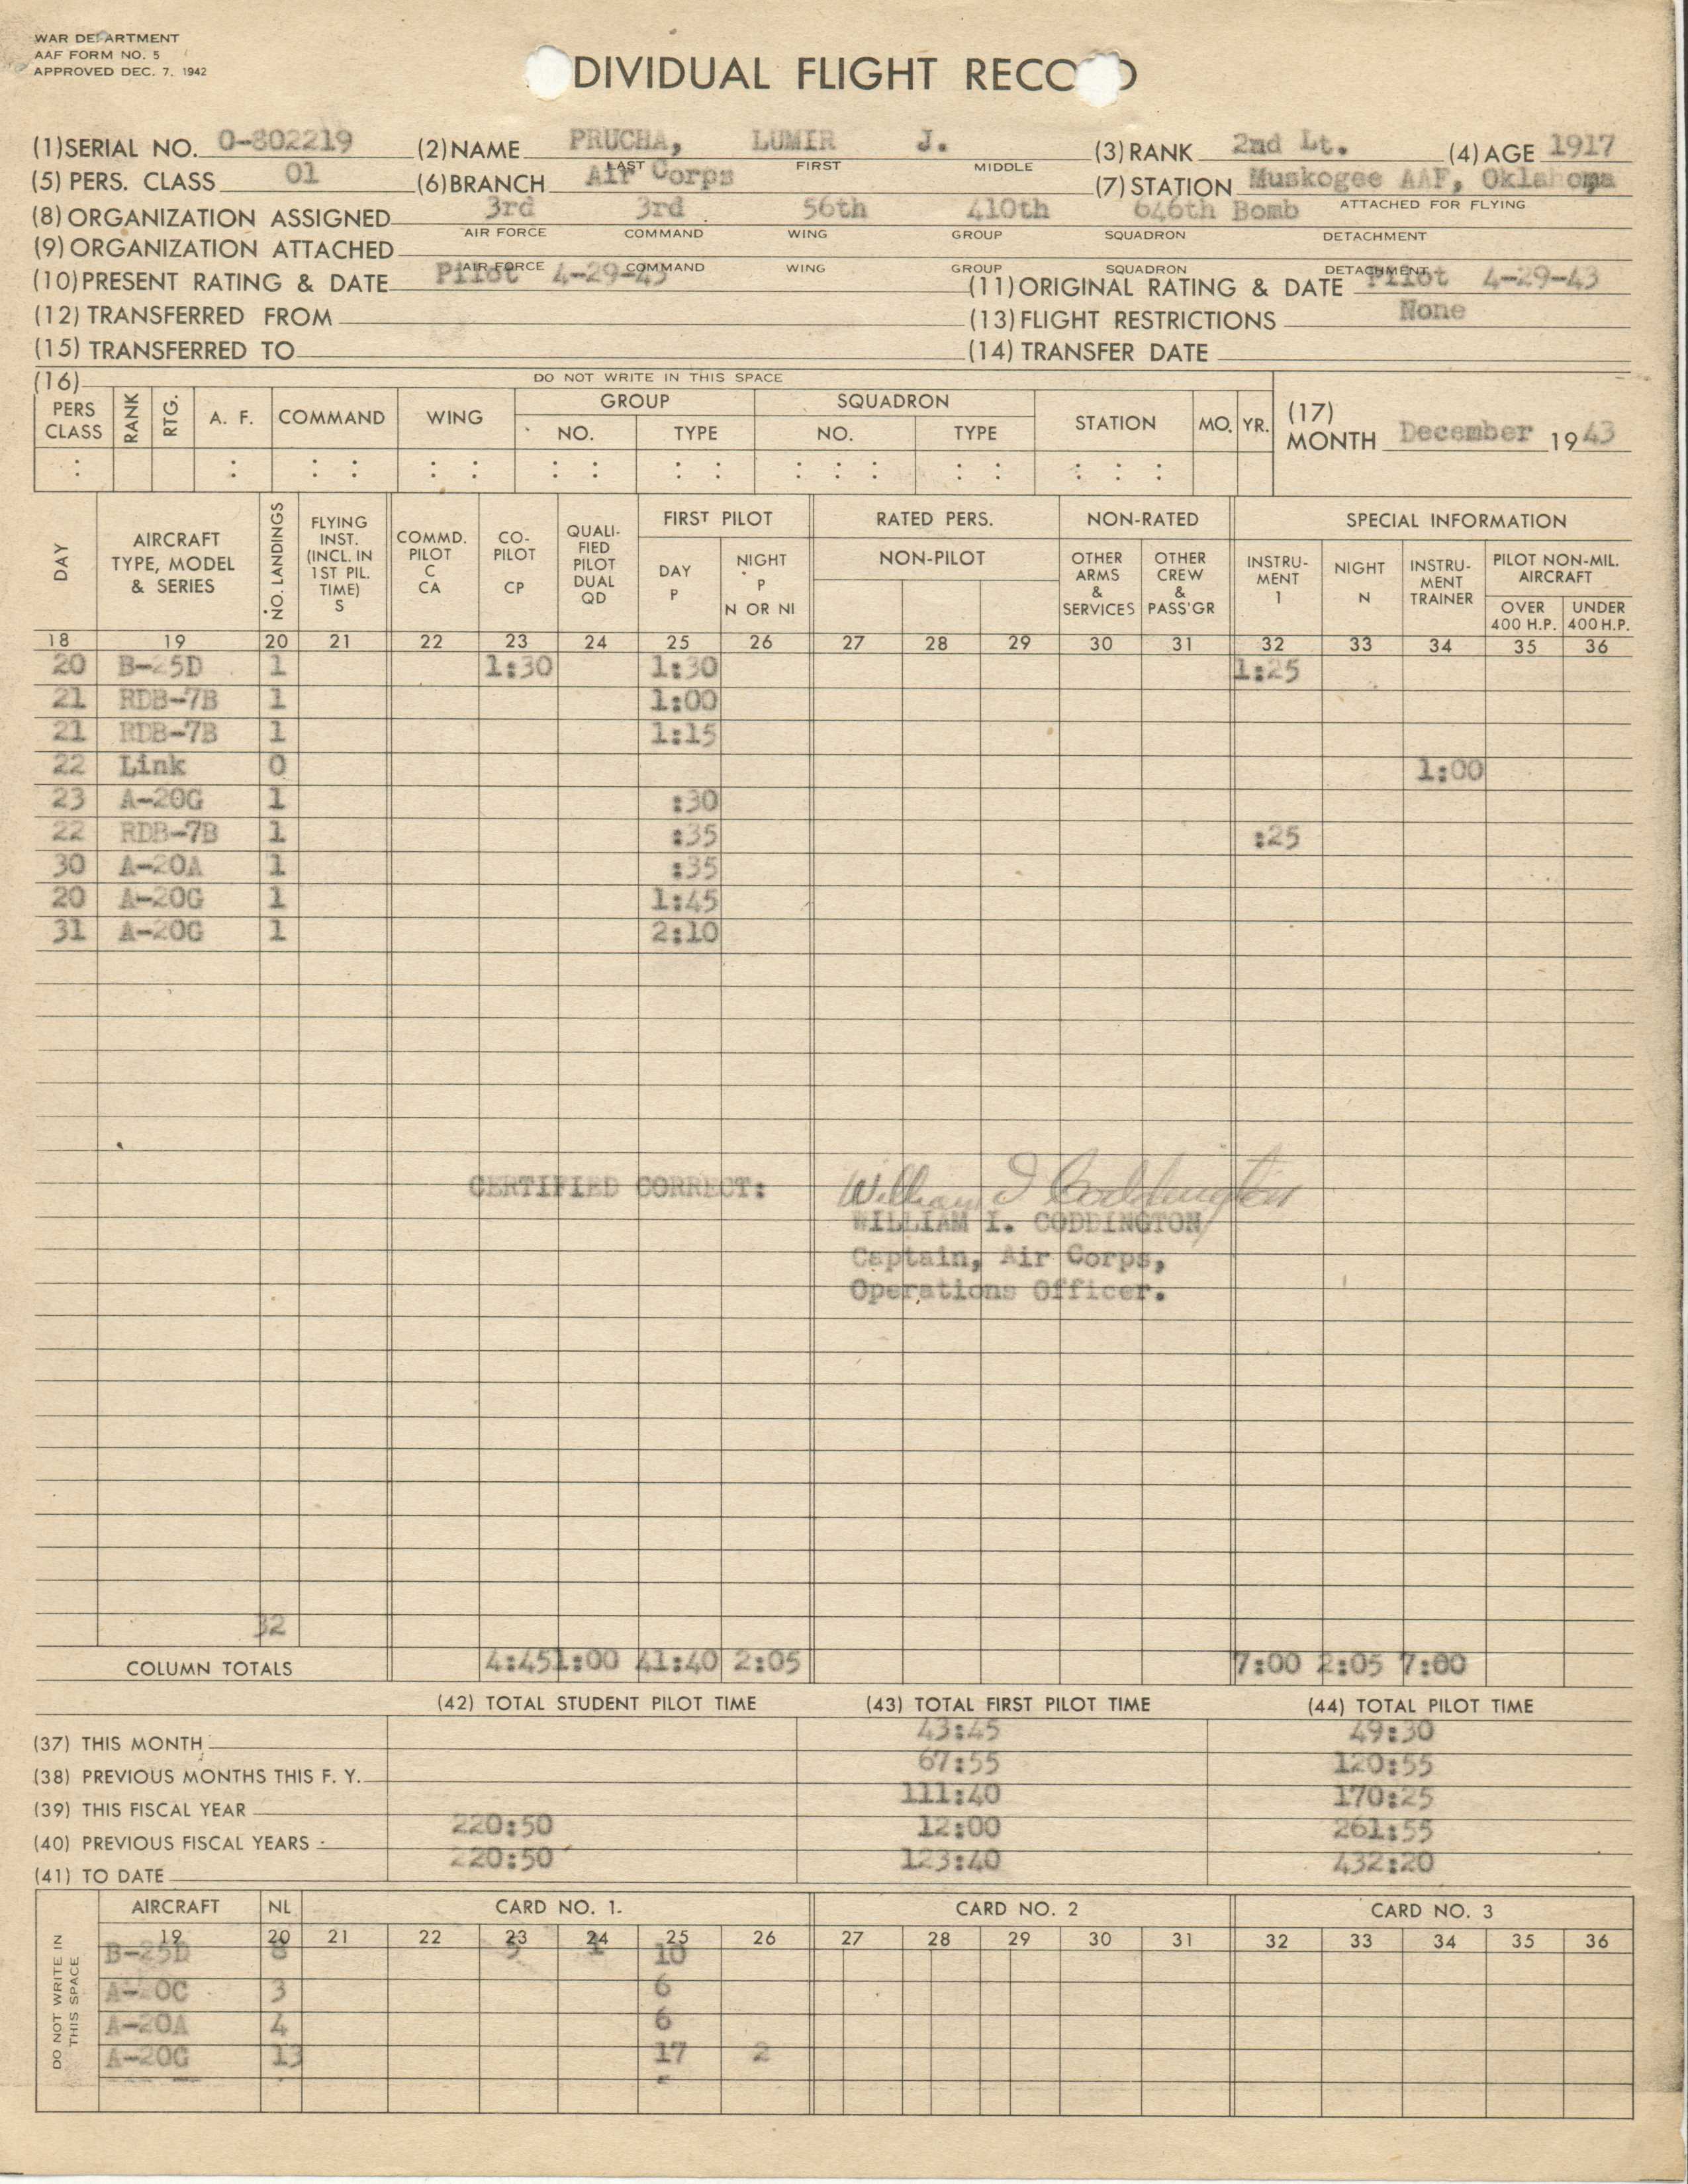 WAR DEPARTMENT
AAF FORM NO. 5
APPROVED DEC. 7, 1942
DIVIDUAL FLIGHT RECO D
(1) SERIAL NO. O-802219 (2) NAME PRUCHA, LUMIR J. (3) RANK 2nd Lt. (4) AGE 1917
LAST FIRST MIDDLE
(5) PERS. CLASS 01 (6) BRANCH Air Corps (7) STATION Muskogee AAF, Oklahoma
ATTACHED FOR FLYING
(8) ORGANIZATION ASSIGNED 3rd 3rd 56th 410th 646th Bomb
AIR FORCE COMMAND WING GROUP SQUADRON DETACHMENT
(9) ORGANIZATION ATTACHED
AIR FORCE COMMAND WING GROUP SQUADRON DETACHMENT
(10) PRESENT RATING & DATE Pilot 4-29-43 (11) ORIGINAL RATING & DATE Pilot 4-29-43
(12) TRANSFERRED FROM (13) FLIGHT RESTRICTIONS None
(15) TRANSFERRED TO (14) TRANSFER DATE
(16) DO NOT WRITE IN THIS SPACE
PERS CLASS RANK RTG. A. F. COMMAND WING GROUP NO. TYPE SQUADRON NO. TYPE STATION MO. YR.
(17) MONTH December 1943
DAY AIRCRAFT TYPE, MODEL & SERIES NO. LANDINGS FLYING INST. (INCL. IN 1ST PIL. TIME) S COMMD. PILOT C CA CO-PILOT CP QUALI-FIED PILOT DUAL QD FIRST PILOT DAY P NIGHT P N OR NI RATED PERS. NON-PILOT NON-RATED OTHER ARMS & SERVICES OTHER CREW & PASS'GR SPECIAL INFORMATION INSTRU-MENT 1 NIGHT N INSTRU-MENT TRAINER PILOT NON-MIL. AIRCRAFT OVER 400 H.P. UNDER 400 H.P.
18 19 20 21 22 23 24 25 26 27 28 29 30 31 32 33 34 35 36
20 B-25D 1 1:30 1:30 1:25
21 RDB-7B 1 1:00
21 RDB-7B 1 1:15
22 Link 0 1:00
23 A-20G 1 :30
22 RDB-7B 1 :35 :25
30 A-20A 1 :35
20 A-20G 1 1:45
31 A-20G 1 2:10
CERTIFIED CORRECT: William I Coddington
WILLIAM I. CODDINGTON
Captain, Air Corps,
Operations Officer.
32
COLUMN TOTALS 4:45 1:00 41:40 2:05 7:00 2:05 7:00
(42) TOTAL STUDENT PILOT TIME (43) TOTAL FIRST PILOT TIME (44) TOTAL PILOT TIME
(37) THIS MONTH 43:45 49:30
(38) PREVIOUS MONTHS THIS F. Y. 67:55 120:55
(39) THIS FISCAL YEAR 111:40 170:25
(40) PREVIOUS FISCAL YEARS 220:50 12:00 261:55
(41) TO DATE 220:50 123:40 432:20
DO NOT WRITE IN THIS SPACE
AIRCRAFT NL CARD NO. 1. CARD NO. 2 CARD NO. 3
19 20 21 22 23 24 25 26 27 28 29 30 31 32 33 34 35 36
B-25D 8 1 10
A-20C 3 6
A-20A 4 6
A-20G 13 17 2